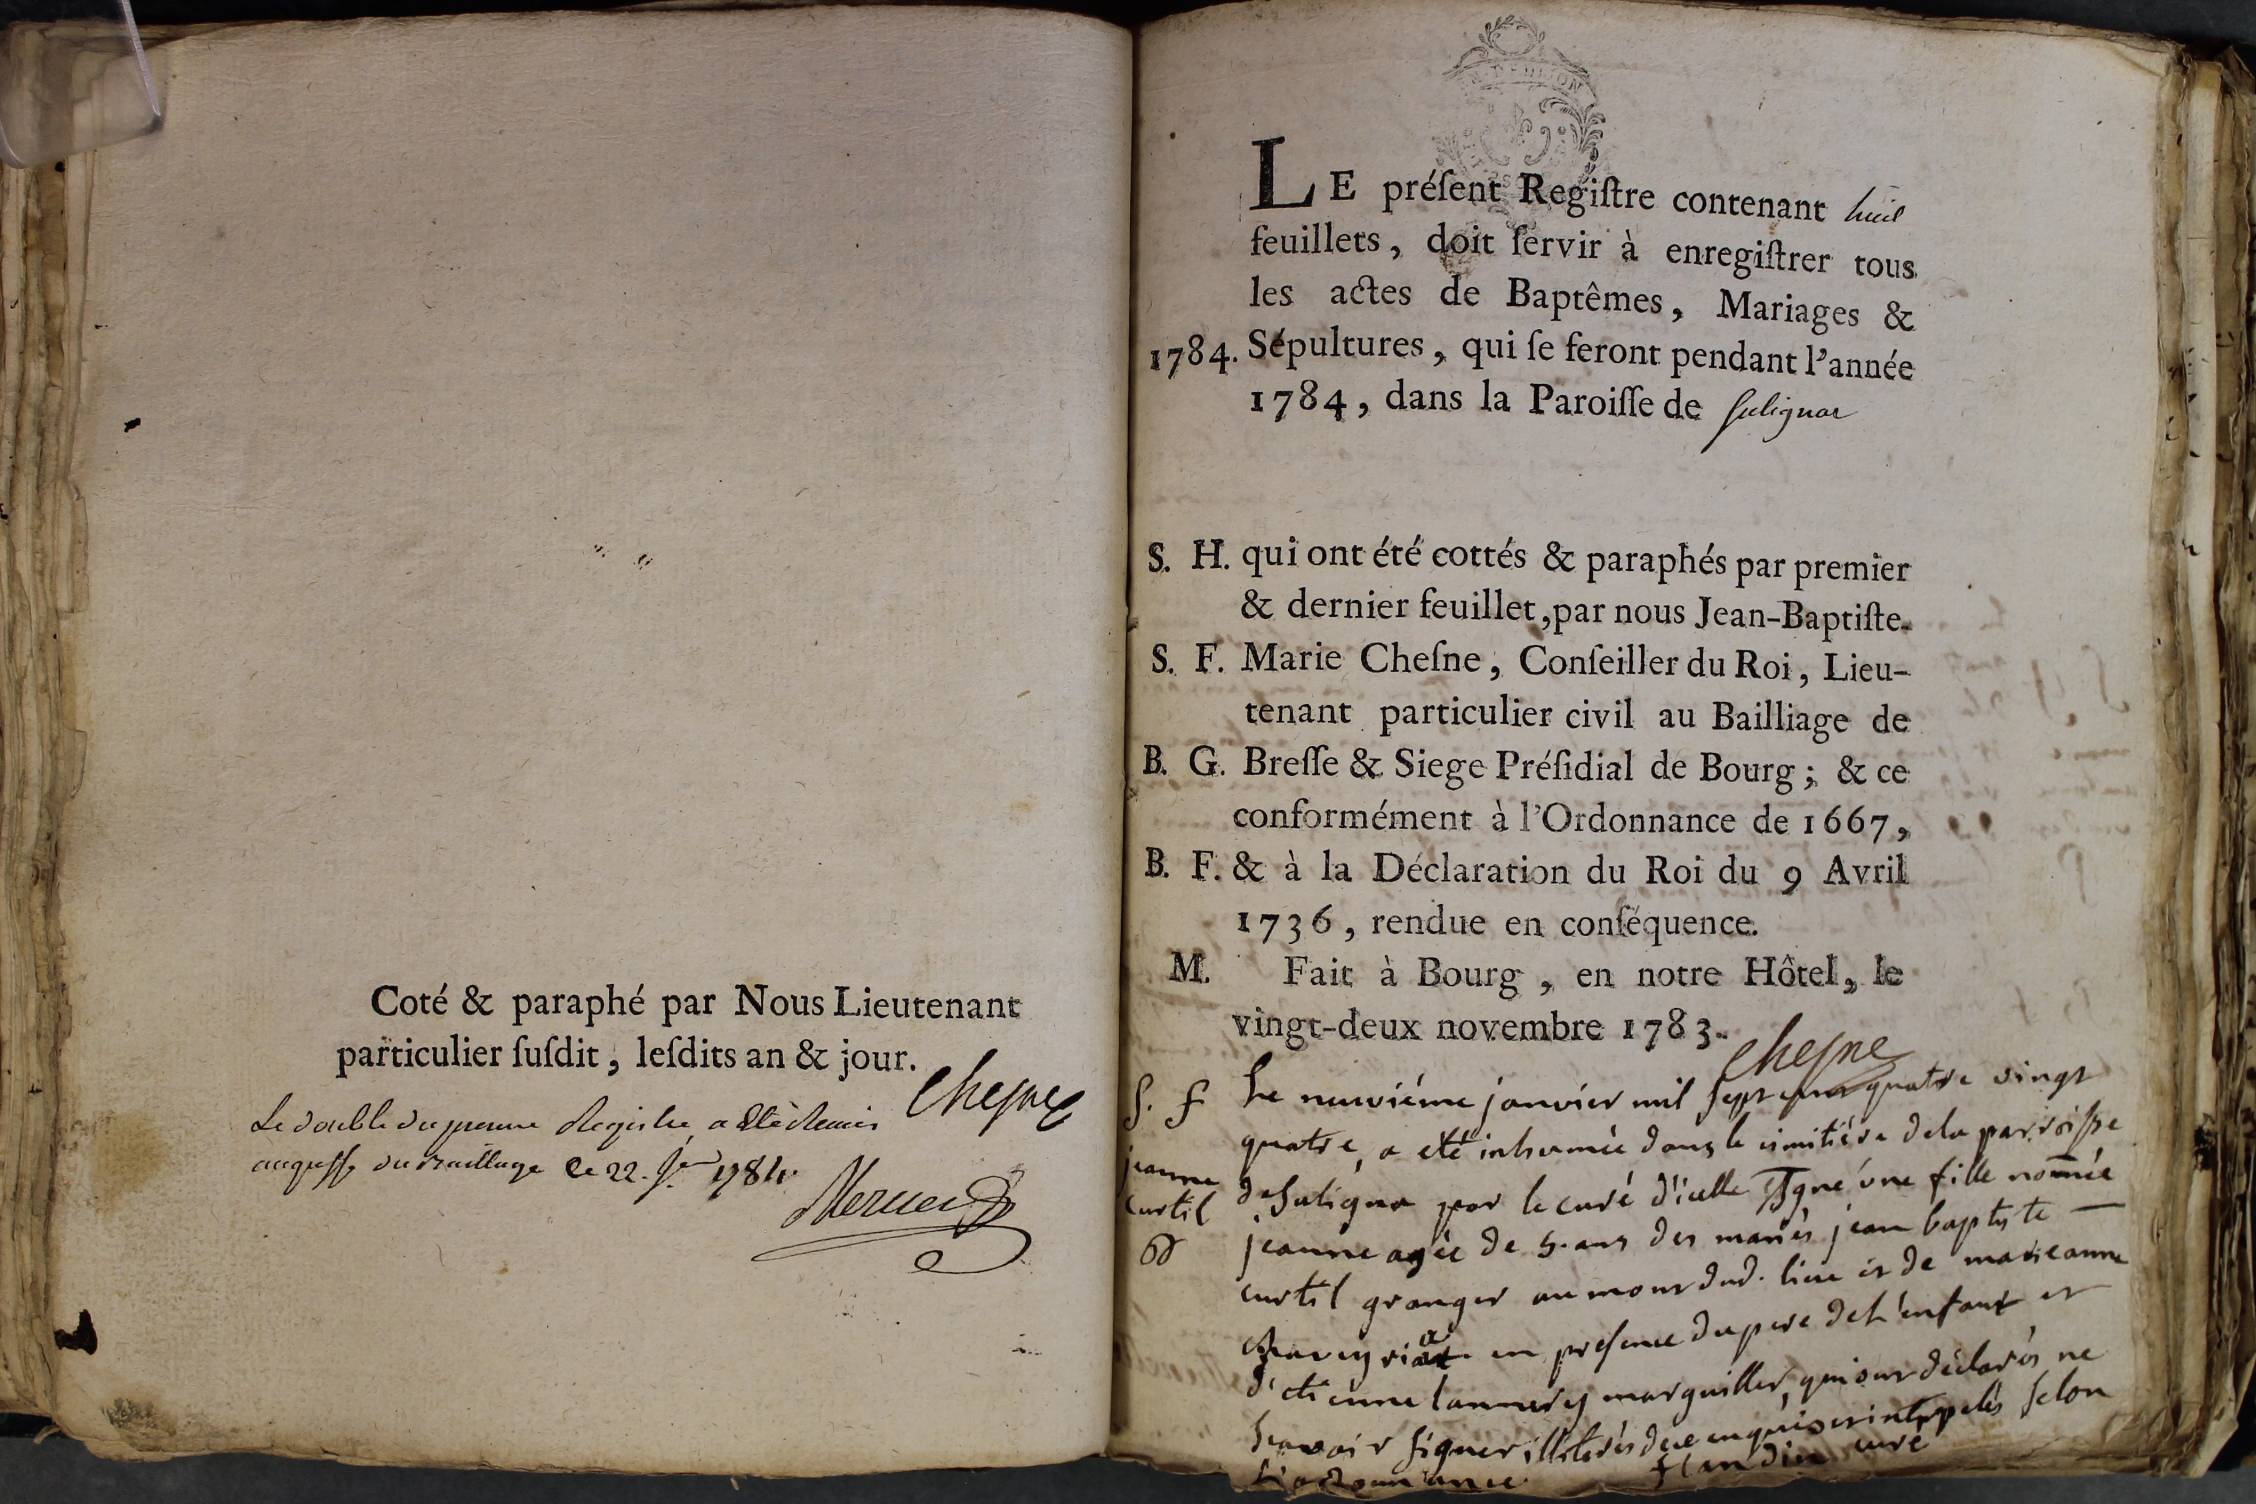 Coté & paraphé par Nous Lieutenant
particulier ſuſdit, leſdits an & jour.
Cheſne
Le double du Regiſtre a été Remis
au greffe du Bailliage le 22. 1784
Mercier
LE préſent Regiſtre contenant huit
feuillets, doit ſervir à enregiſtrer tous
les actes de Baptêmes, Mariages &
1784. Sépultures, qui ſe feront pendant l'année
1784, dans la Paroiſſe de Sulignat
S. H. qui ont été cottés & paraphés par premier
& dernier feuillet, par nous Jean-Baptiſte-
S. F. Marie Cheſne, Conſeiller du Roi, Lieu-
tenant particulier civil au Bailliage de
B. G. Breſſe & Siege Préſidial de Bourg; & ce
conformément à l'Ordonnance de 1667,
B. F. & à la Déclaration du Roi du 9 Avril
1736, rendue en conſéquence.
M. Fait à Bourg, en notre Hôtel, le
vingt-deux novembre 1783.
Cheſne
S. f Le neuviéme janvier mil sept cent quatre vingt
quatre, a eté inhumée dans le cimitiére de la parroisse
jeanne de Suligna par le curé d'icelle sſigné une fille nomée
curtil jeanne agée de 5. ans des mariés jean baptiste
curtil granger au mont dud. lieu et de marieanne
en presence du pere de l'enfant et
d'etienne lannery marguillier, qui ont déclarés ne
scavoir signer illiterés de ce enquis et intérpelés selon
l'ordonnance. curé